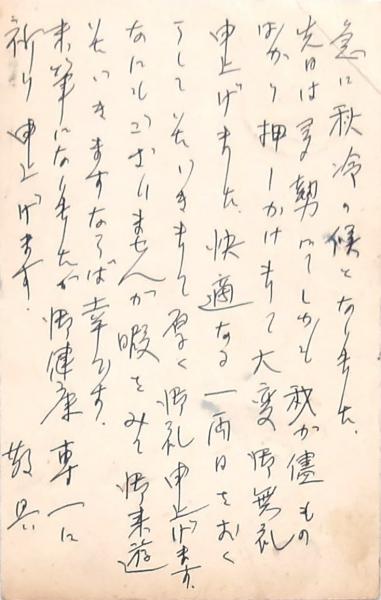 急に秋冷の候となりました。
先日は多勢にてしかも我が儘もの
ばかり押しかけまして大変御無礼
申上げました。快適なる一両日をおく
りしていたゞきまして厚く御礼申上げます。
なにもございませんが暇をみて御来遊
いたゞきますならば幸です。
末筆になりましたが御健康専一に
祈り申上げます。
敬具